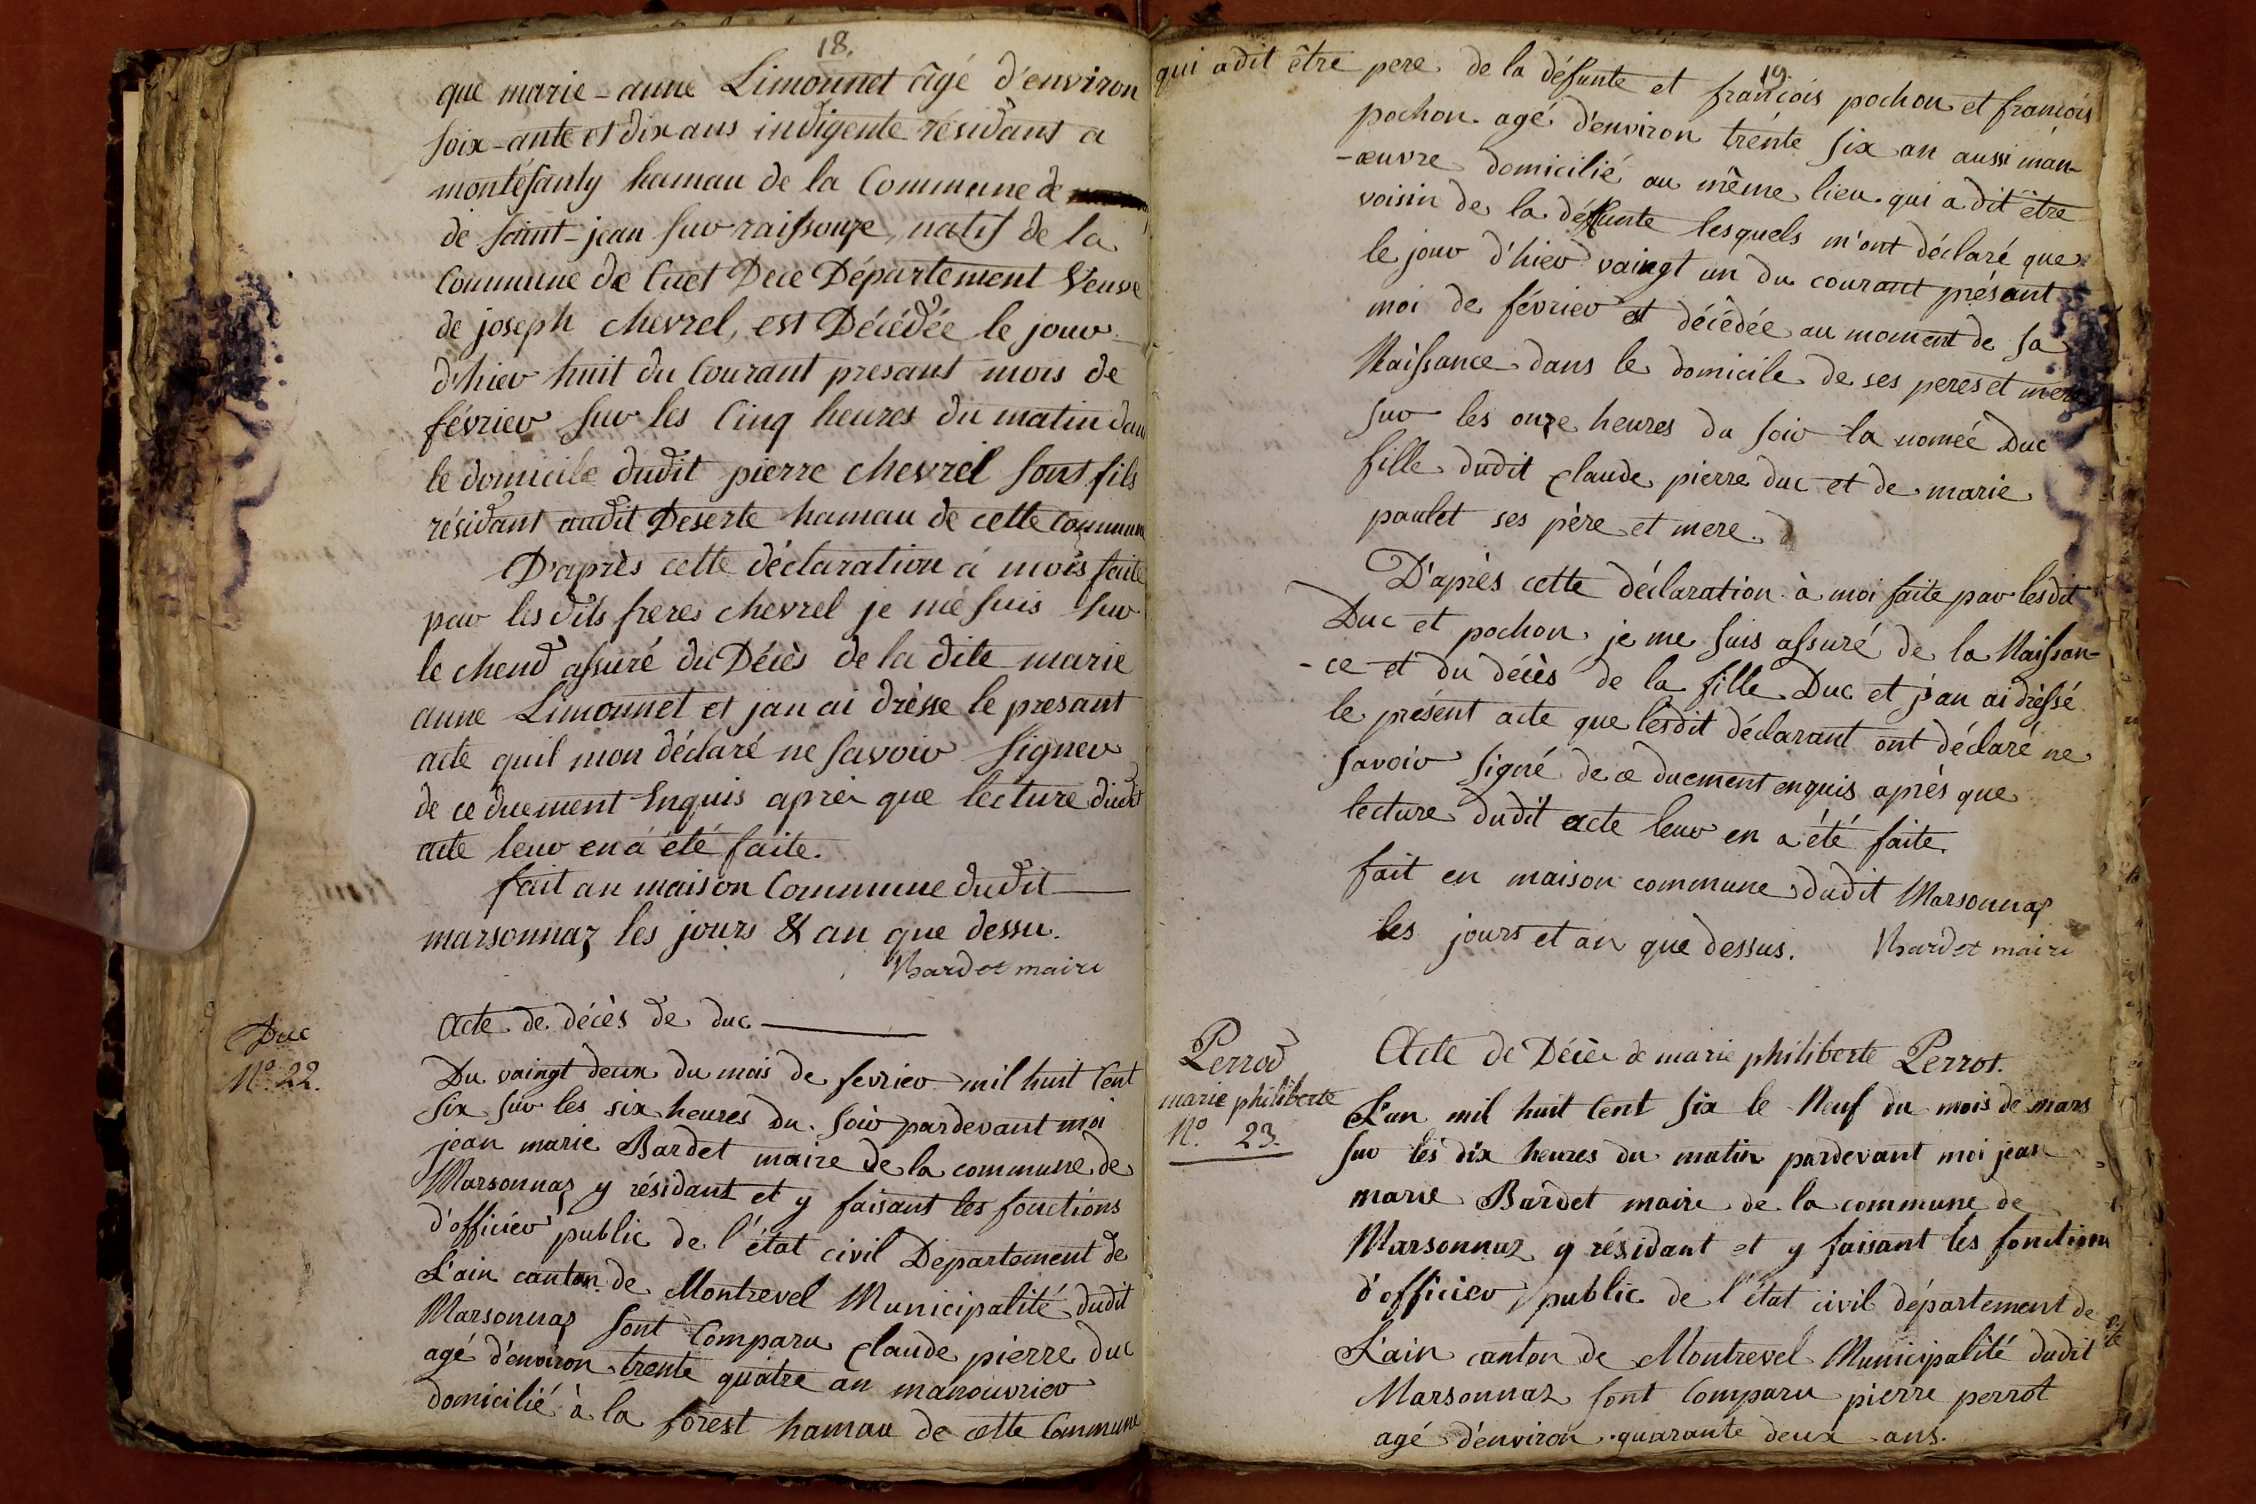 18.
que marie-anne Limonnet âgé d'environ
soix-ante et dix ans indigente résidant a
montéfanty hamau de la Commune de
de saint-jean sur raissouze, natif de la
Commune de Cuet Dece Département Veuve
de joseph chevrel, est Décédée le jour
d'hier huit du Courant presant mois de
février sur les Cinq heures du matin dans
le domicile dudit pierre chevrel sont fils
résidant audit Deserte hamau de cette Commune
D'après cette déclaration à mois faite
par les dits freres chevrel je me suis sur
le chend assuré du Décès de la dite marie
anne Limonnet et jan ai drèsse le presant
acte quil mon déclaré ne savoir signer
de ce duement Enquis après que lecture dudit
acte leur en á été faite.
fait an maison Commune dudit
marsonnaz les jours & an que dessu.
Bardet maire
Duc
N.º 22.
Acte de décès de duc
Du vaingt deux du mois de fevrier mil huit Cent
six sur les six heures du soir pardevant moi
jean marie Bardet maire de la commune de
Marsonnaz y résidant et y faisant les fonctions
d'officier public de l'état civil Departement de
L'ain canton de Montrevel Municipalité dudit
Marsonnaz sont Comparu claude pierre duc
agé d'environ trente quatre an manouvrier
domicilié à la forest hamau de cette Commune
19.
qui a dit être pere de la défunte et françois pochon et françois
pochon agé d'environ trénte six an aussi man-
-œuvre domicilié au même lieu qui a dit être
voisin de la défunte lesquels m'ont déclaré que
le jour d'hier vaingt un du courant présant
moi de février est décédée au moment de sa
Naissance dans le domicile de ses peres et mere
sur les onze heures du soir la nomée Duc
fille dudit claude pierre duc et de marie
paulet ses père et mere.
D'après cette déclaration à moi faite par lesdit
Duc et pochon je me suis assuré de la Naissan-
-ce et du décès de la fille Duc et j'an ai dressé
le présent acte que lesdit déclarant ont déclaré ne
savoir signé de ce duement enquis après que
lecture dudit acte leur en a été faite.
fait en maison commune dudit Marsonnaz
les jours et an que dessus. Bardet maire
Perrod
marie philiberte
N.º 23.
Acte de Décès de marie philiberte Perrot.
L'an mil huit Cent six le Neuf du mois de mars
sur les dix heures du matin pardevant moi jean
marie Bardet maire de la commune de
Marsonnaz y résidant et y faisant les fonctions
d'officier public de l'état civil département de
L'ain canton de Montrevel Municipalité dudit
Marsonnaz sont Comparu pierre perrot
agé d'environ quarante deux ans.